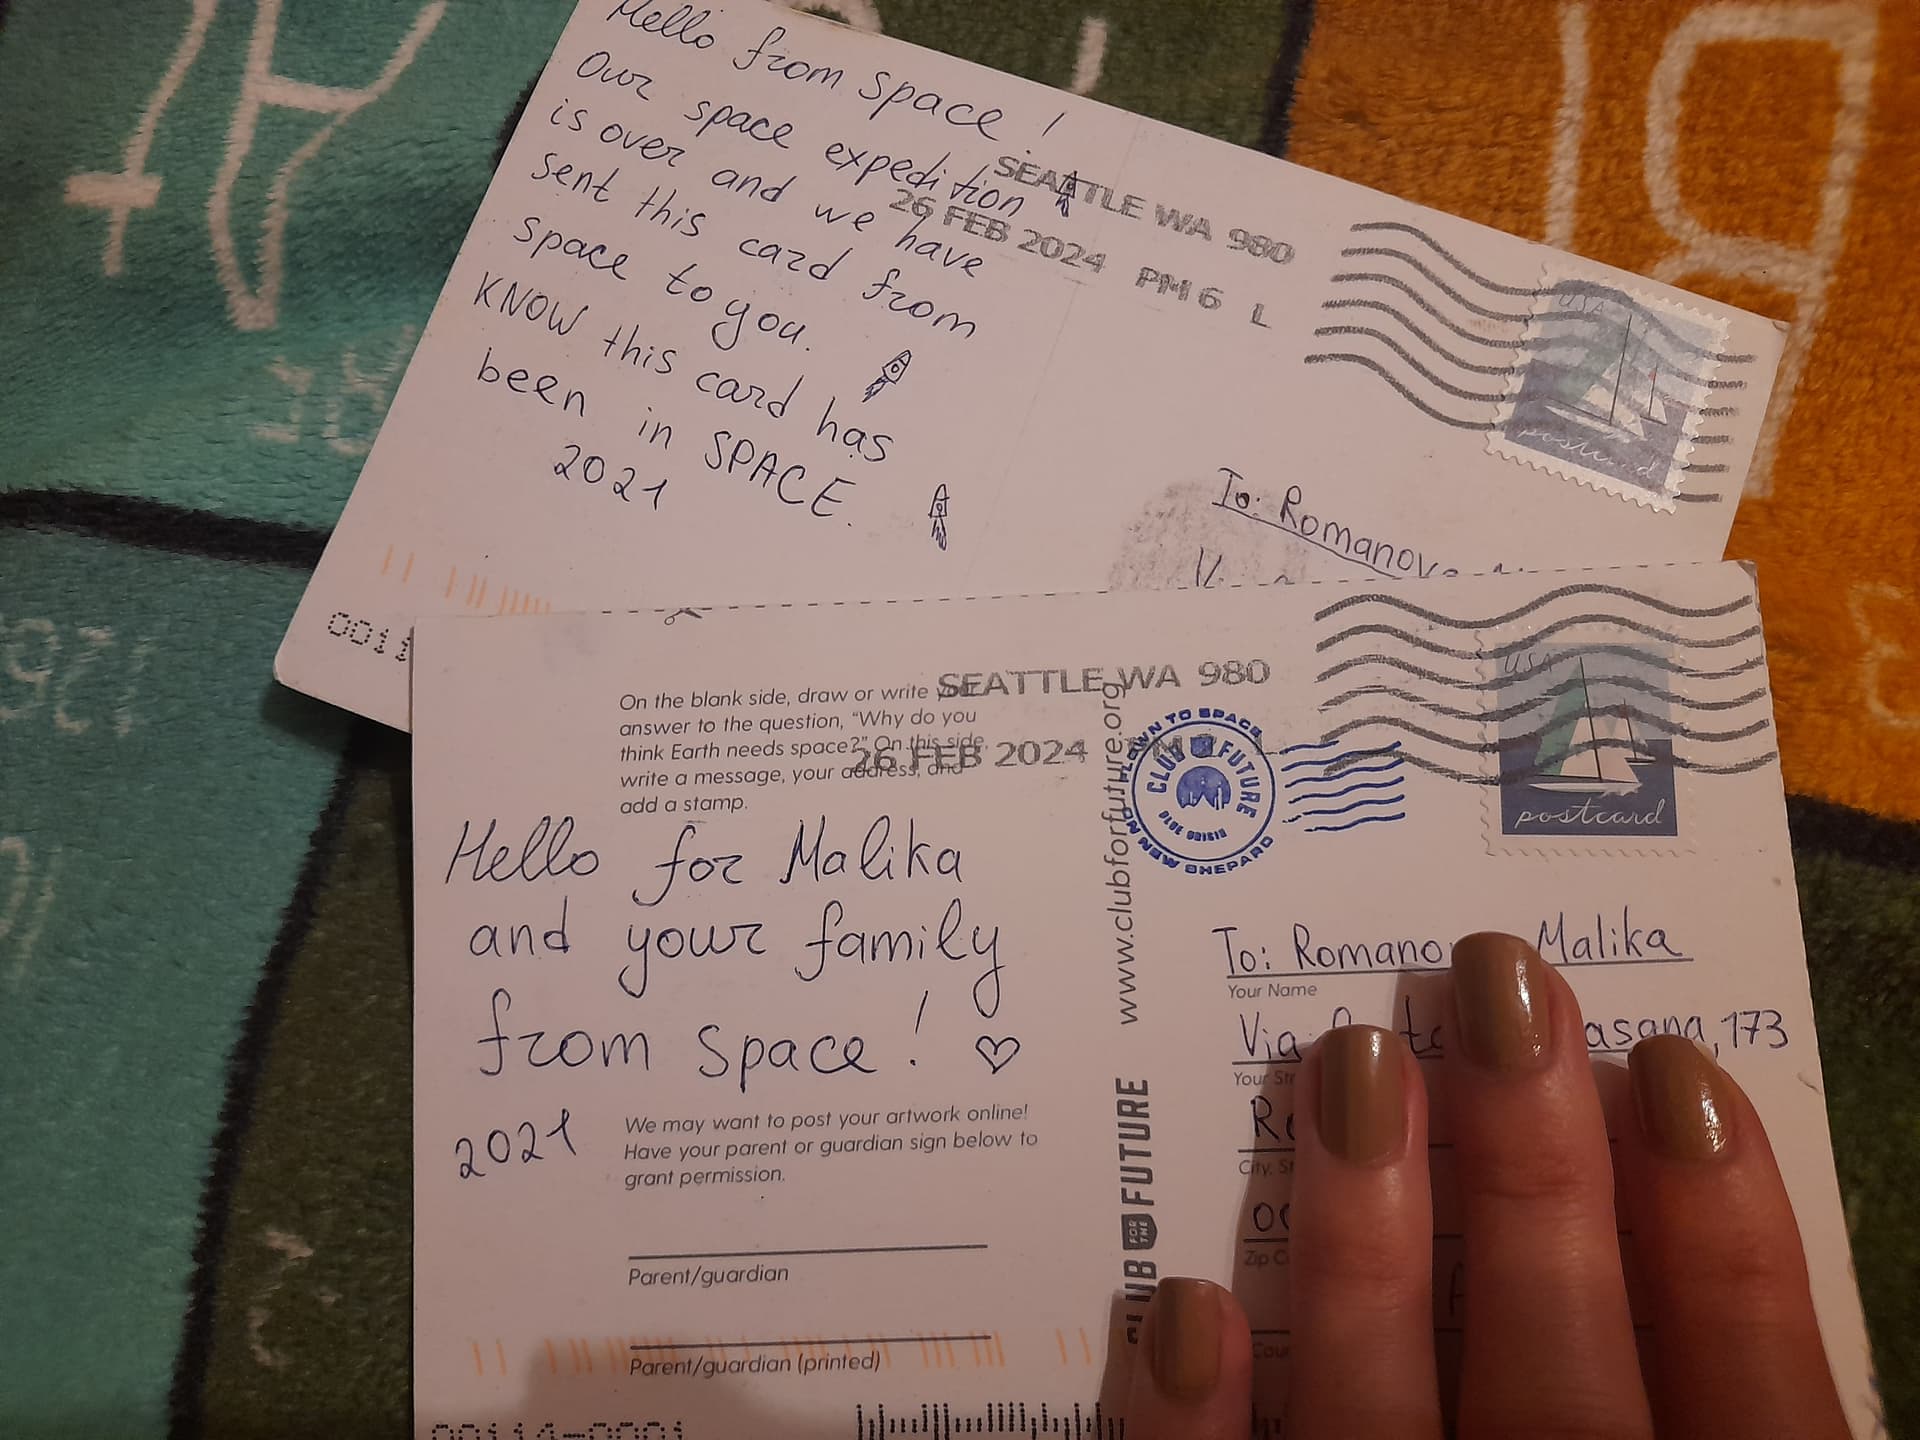 Hello from space!
Our space expedition
is over and we have
sent this card from
space to you.
KNOW this card has
been in SPACE.
2021
SEATTLE WA 980
26 FEB 2024 PM 6 L
USA
postcard
To: Romanova
0011
On the blank side, draw or write your
answer to the question, “Why do you
think Earth needs space?” On this side,
write a message, your address, and
add a stamp.
Hello for Malika
and your family
from space! ♡
2021
We may want to post your artwork online!
Have your parent or guardian sign below to
grant permission.
Parent/guardian
Parent/guardian (printed)
00114-0001
SEATTLE WA 980
26 FEB 2024
www.clubforfuture.org
CLUB FOR THE FUTURE
FLOWN TO SPACE
CLUB FUTURE
BLUE ORIGIN
ON NEW SHEPARD
USA
postcard
To: Romano Malika
Your Name
Via asana, 173
Your St
City, St
Zip C
Cou